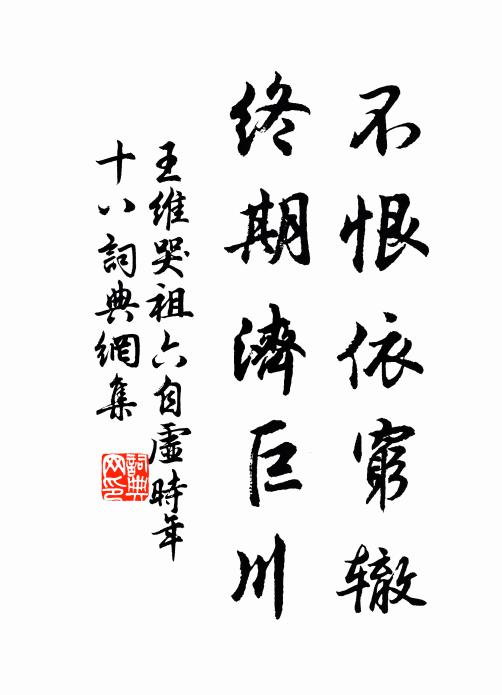 不恨依窮辙
終期濟巨川
王維哭祖六自虛時年
十八詞典網集
詞典
网印